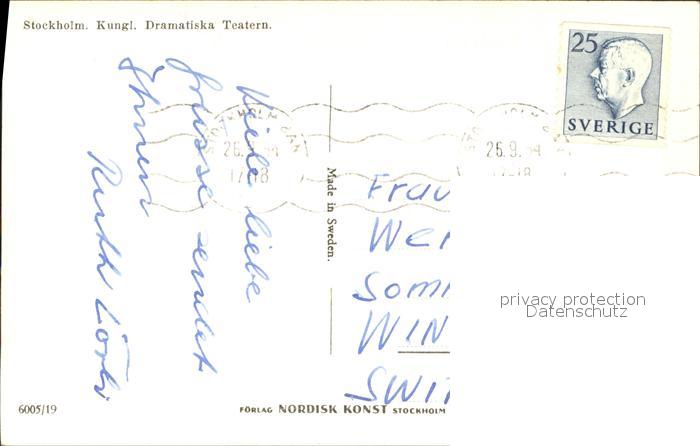 Stockholm. Kungl. Dramatiska Teatern.
Viele liebe
Grüsse sendet
Ihnen
Ruth
25
SVERIGE
STOCKHOLM BAN
26.9.54
17-18
26.9.54
17-18
Made in Sweden.
Frau
Wer
Somm
WIN
SWIT
privacy protection
Datenschutz
6005/19
FÖRLAG NORDISK KONST STOCKHOLM